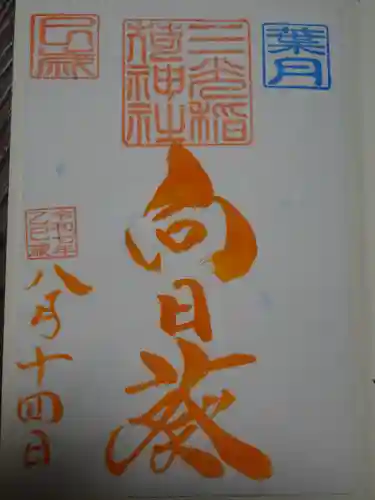 葉月
三光稲
荷神社
巳歳
向日葵
令和七年
乙巳歳
八月十四日